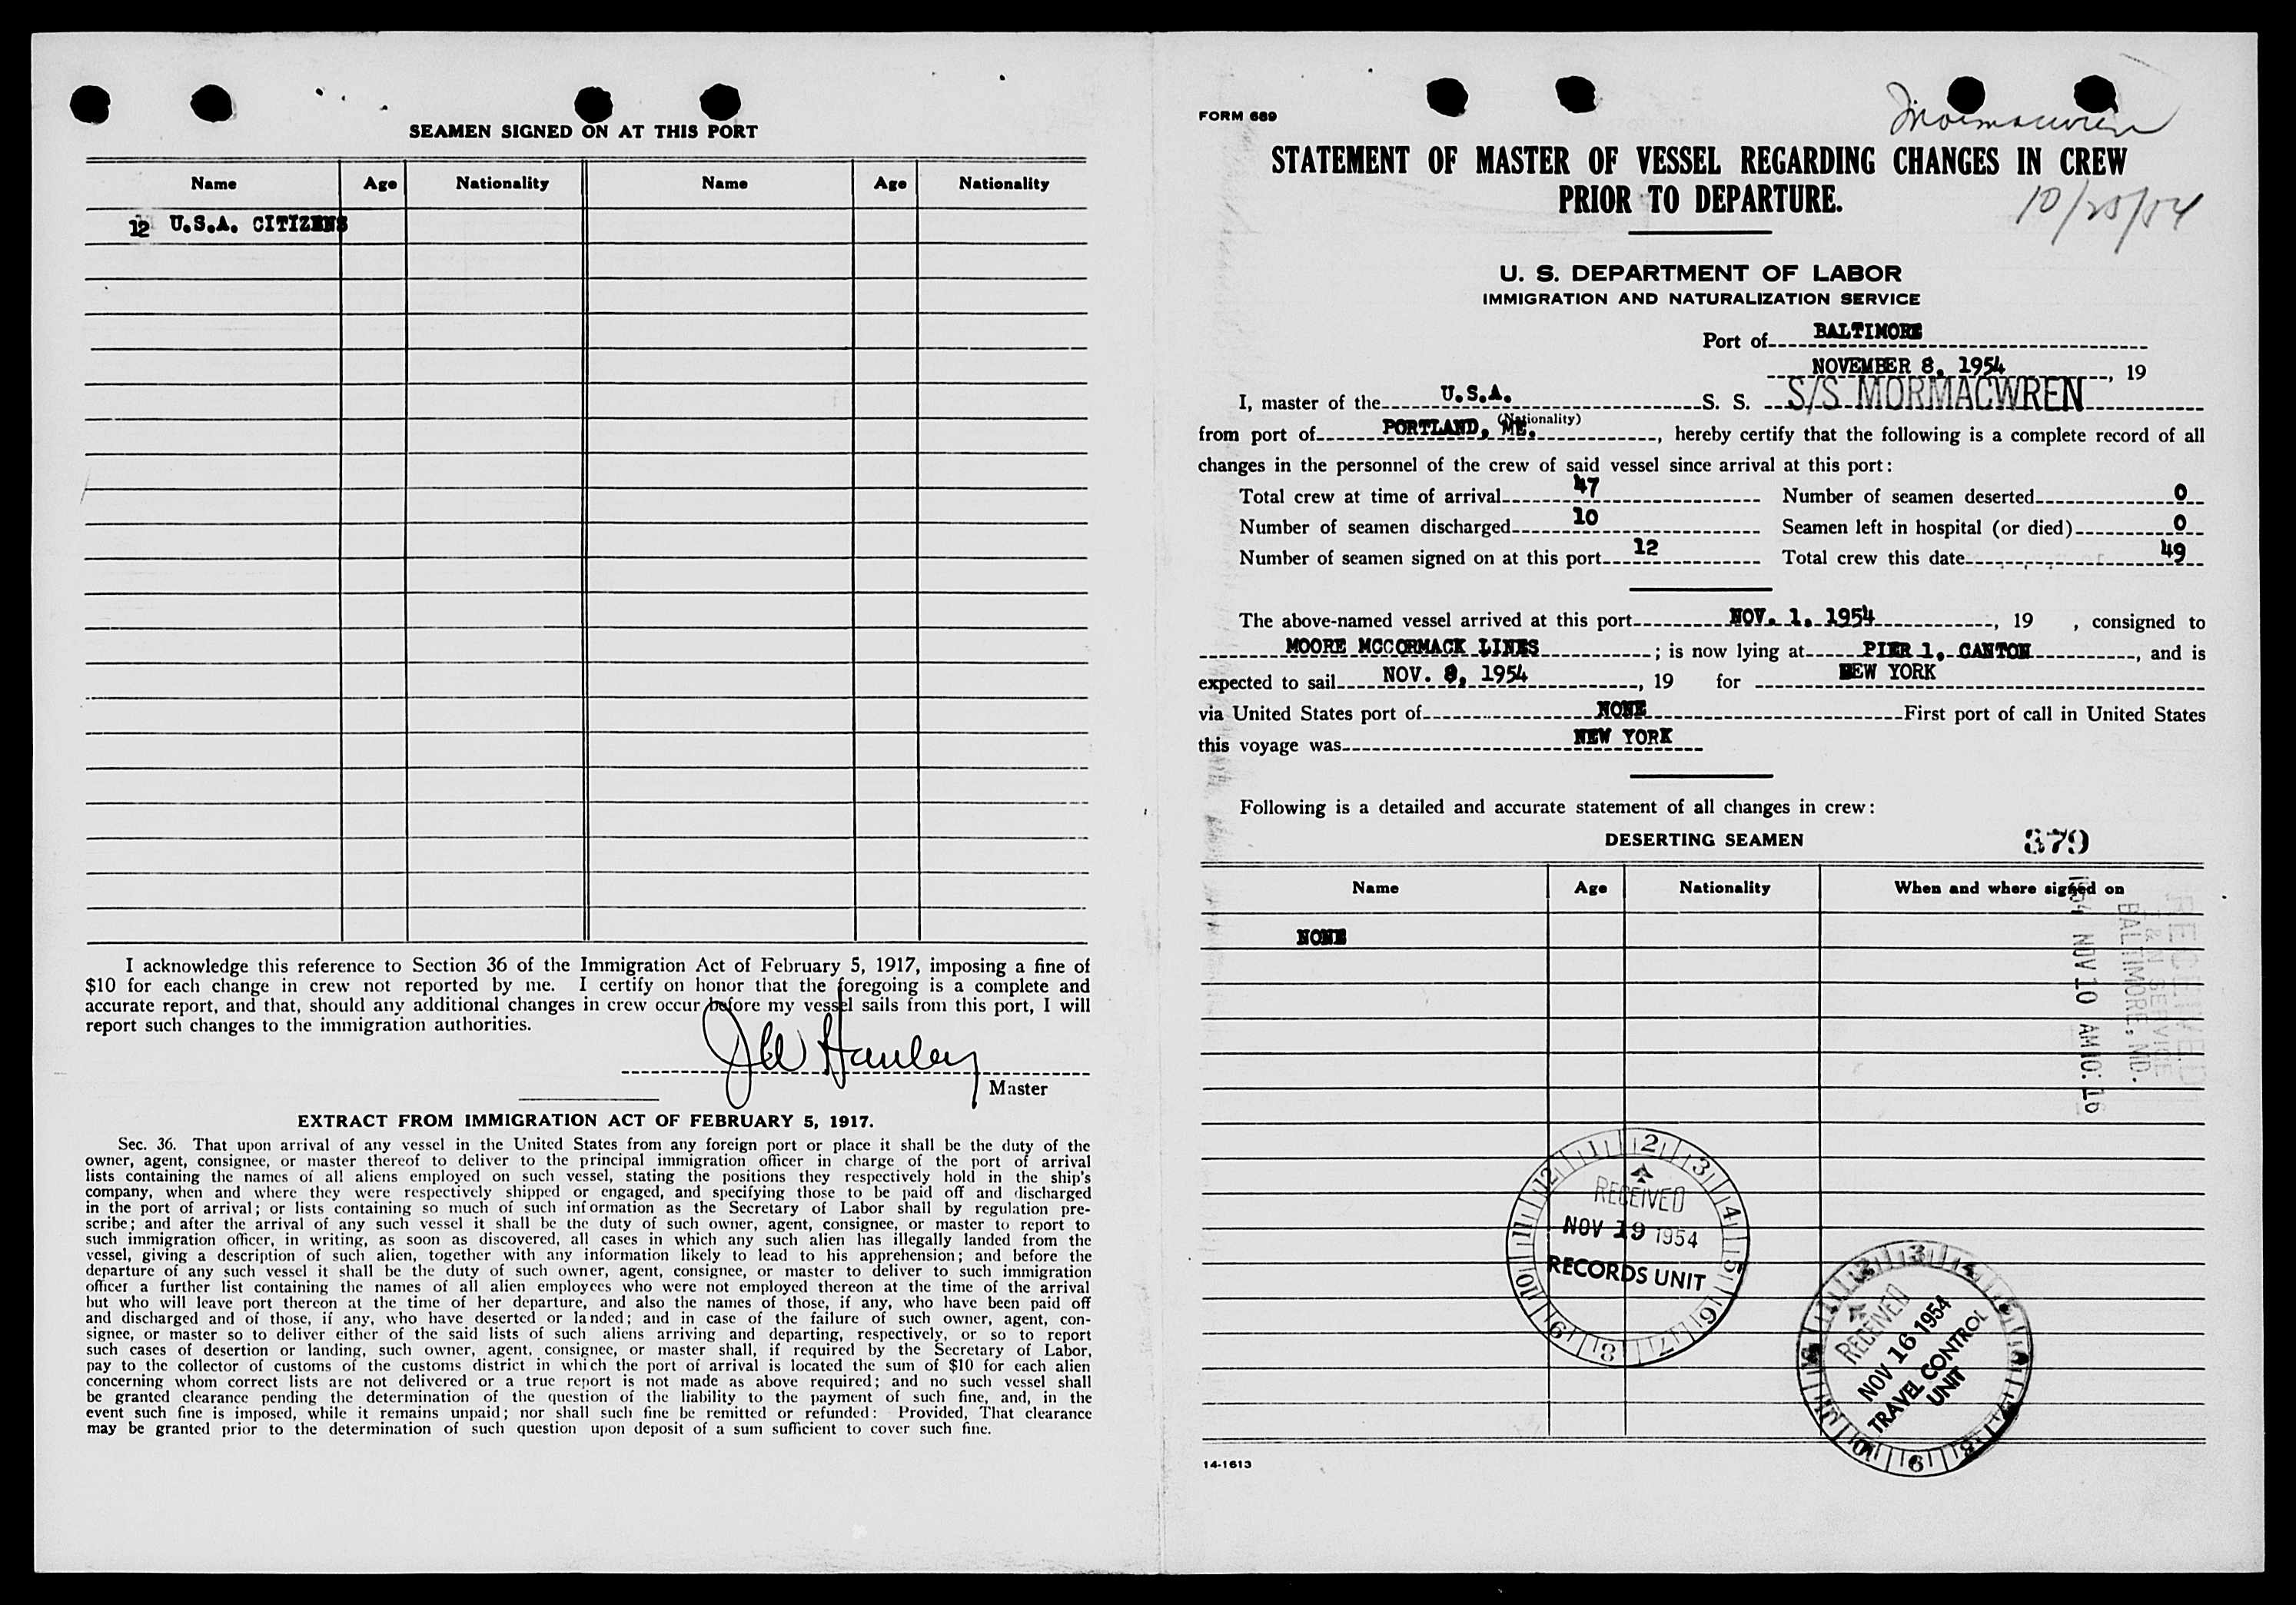 SEAMEN SIGNED ON AT THIS PORT
Name Age Nationality Name Age Nationality
12 U.S.A. CITIZENS
I acknowledge this reference to Section 36 of the Immigration Act of February 5, 1917, imposing a fine of
$10 for each change in crew not reported by me. I certify on honor that the foregoing is a complete and
accurate report, and that, should any additional changes in crew occur before my vessel sails from this port, I will
report such changes to the immigration authorities.
Hanley
Master
EXTRACT FROM IMMIGRATION ACT OF FEBRUARY 5, 1917.
Sec. 36. That upon arrival of any vessel in the United States from any foreign port or place it shall be the duty of the
owner, agent, consignee, or master thereof to deliver to the principal immigration officer in charge of the port of arrival
lists containing the names of all aliens employed on such vessel, stating the positions they respectively hold in the ship's
company, when and where they were respectively shipped or engaged, and specifying those to be paid off and discharged
in the port of arrival; or lists containing so much of such information as the Secretary of Labor shall by regulation pre-
scribe; and after the arrival of any such vessel it shall be the duty of such owner, agent, consignee, or master to report to
such immigration officer, in writing, as soon as discovered, all cases in which any such alien has illegally landed from the
vessel, giving a description of such alien, together with any information likely to lead to his apprehension; and before the
departure of any such vessel it shall be the duty of such owner, agent, consignee, or master to deliver to such immigration
officer a further list containing the names of all alien employees who were not employed thereon at the time of the arrival
but who will leave port thereon at the time of her departure, and also the names of those, if any, who have been paid off
and discharged and of those, if any, who have deserted or landed; and in case of the failure of such owner, agent, con-
signee, or master so to deliver either of the said lists of such aliens arriving and departing, respectively, or so to report
such cases of desertion or landing, such owner, agent, consignee, or master shall, if required by the Secretary of Labor,
pay to the collector of customs of the customs district in which the port of arrival is located the sum of $10 for each alien
concerning whom correct lists are not delivered or a true report is not made as above required; and no such vessel shall
be granted clearance pending the determination of the question of the liability to the payment of such fine, and, in the
event such fine is imposed, while it remains unpaid; nor shall such fine be remitted or refunded: Provided, That clearance
may be granted prior to the determination of such question upon deposit of a sum sufficient to cover such fine.
FORM 689
Mormacwren
STATEMENT OF MASTER OF VESSEL REGARDING CHANGES IN CREW
PRIOR TO DEPARTURE.
10/25/54
U. S. DEPARTMENT OF LABOR
IMMIGRATION AND NATURALIZATION SERVICE
Port of BALTIMORE
NOVEMBER 8, 1954, 19
I, master of the U.S.A. S. S. S/S MORMACWREN
(Nationality)
from port of PORTLAND, ME., hereby certify that the following is a complete record of all
changes in the personnel of the crew of said vessel since arrival at this port:
Total crew at time of arrival 47 Number of seamen deserted 0
Number of seamen discharged 10 Seamen left in hospital (or died) 0
Number of seamen signed on at this port 12 Total crew this date 49
The above-named vessel arrived at this port NOV. 1, 1954, 19 , consigned to
MOORE MCCORMACK LINES; is now lying at PIER 1, CANTON, and is
expected to sail NOV. 8, 1954, 19 for NEW YORK
via United States port of NONE First port of call in United States
this voyage was NEW YORK
Following is a detailed and accurate statement of all changes in crew:
DESERTING SEAMEN
879
Name Age Nationality When and where signed on
NONE
RECEIVED
I & N SERVICE
BALTIMORE, MD.
1954 NOV 10 AM 10:16
12 1 2 3 4 5 6 7 8 9 10 11
RECEIVED
NOV 19 1954
RECORDS UNIT
RECEIVED
NOV 16 1954
TRAVEL CONTROL
UNIT
14-1613